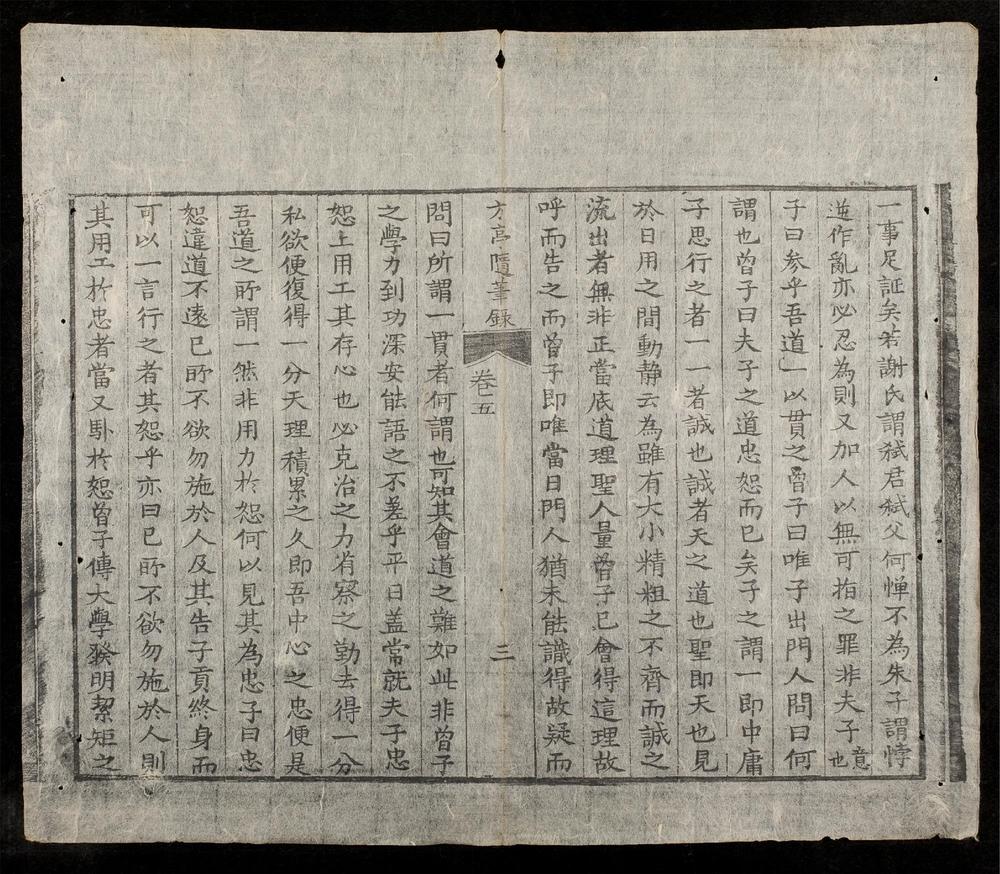 一事足証矣若謝氏謂弑君弑父何憚不為朱子謂悖
逆作亂亦必忍為則又加人以無可指之罪非夫子意也
子曰参乎吾道一以貫之曾子曰唯子出門人問曰何
謂也曾子曰夫子之道忠恕而已矣子之謂一即中庸
子思行之者一一者誠也誠者天之道也聖即天也見
於日用之間動静云為雖有大小精粗之不齊而誠之
流出者無非正當底道理聖人量曾子已會得這理故
呼而告之而曾子即唯當日門人猶未能識得故疑而
方亭隨筆録
卷五
三
問曰所謂一貫者何謂也可知其會道之難如此非曾子
之學力到功深安能語之不差乎平日盖常就夫子忠
恕上用工其存心也必克治之力省察之勤去得一分
私欲便復得一分天理積累之久即吾中心之忠便是
吾道之所謂一然非用力於恕何以見其為忠子曰忠
恕違道不遠已所不欲勿施於人及其告子貢終身而
可以一言行之者其恕乎亦曰已所不欲勿施於人則
其用工於忠者當又馭於恕曾子傳大學發明絜矩之